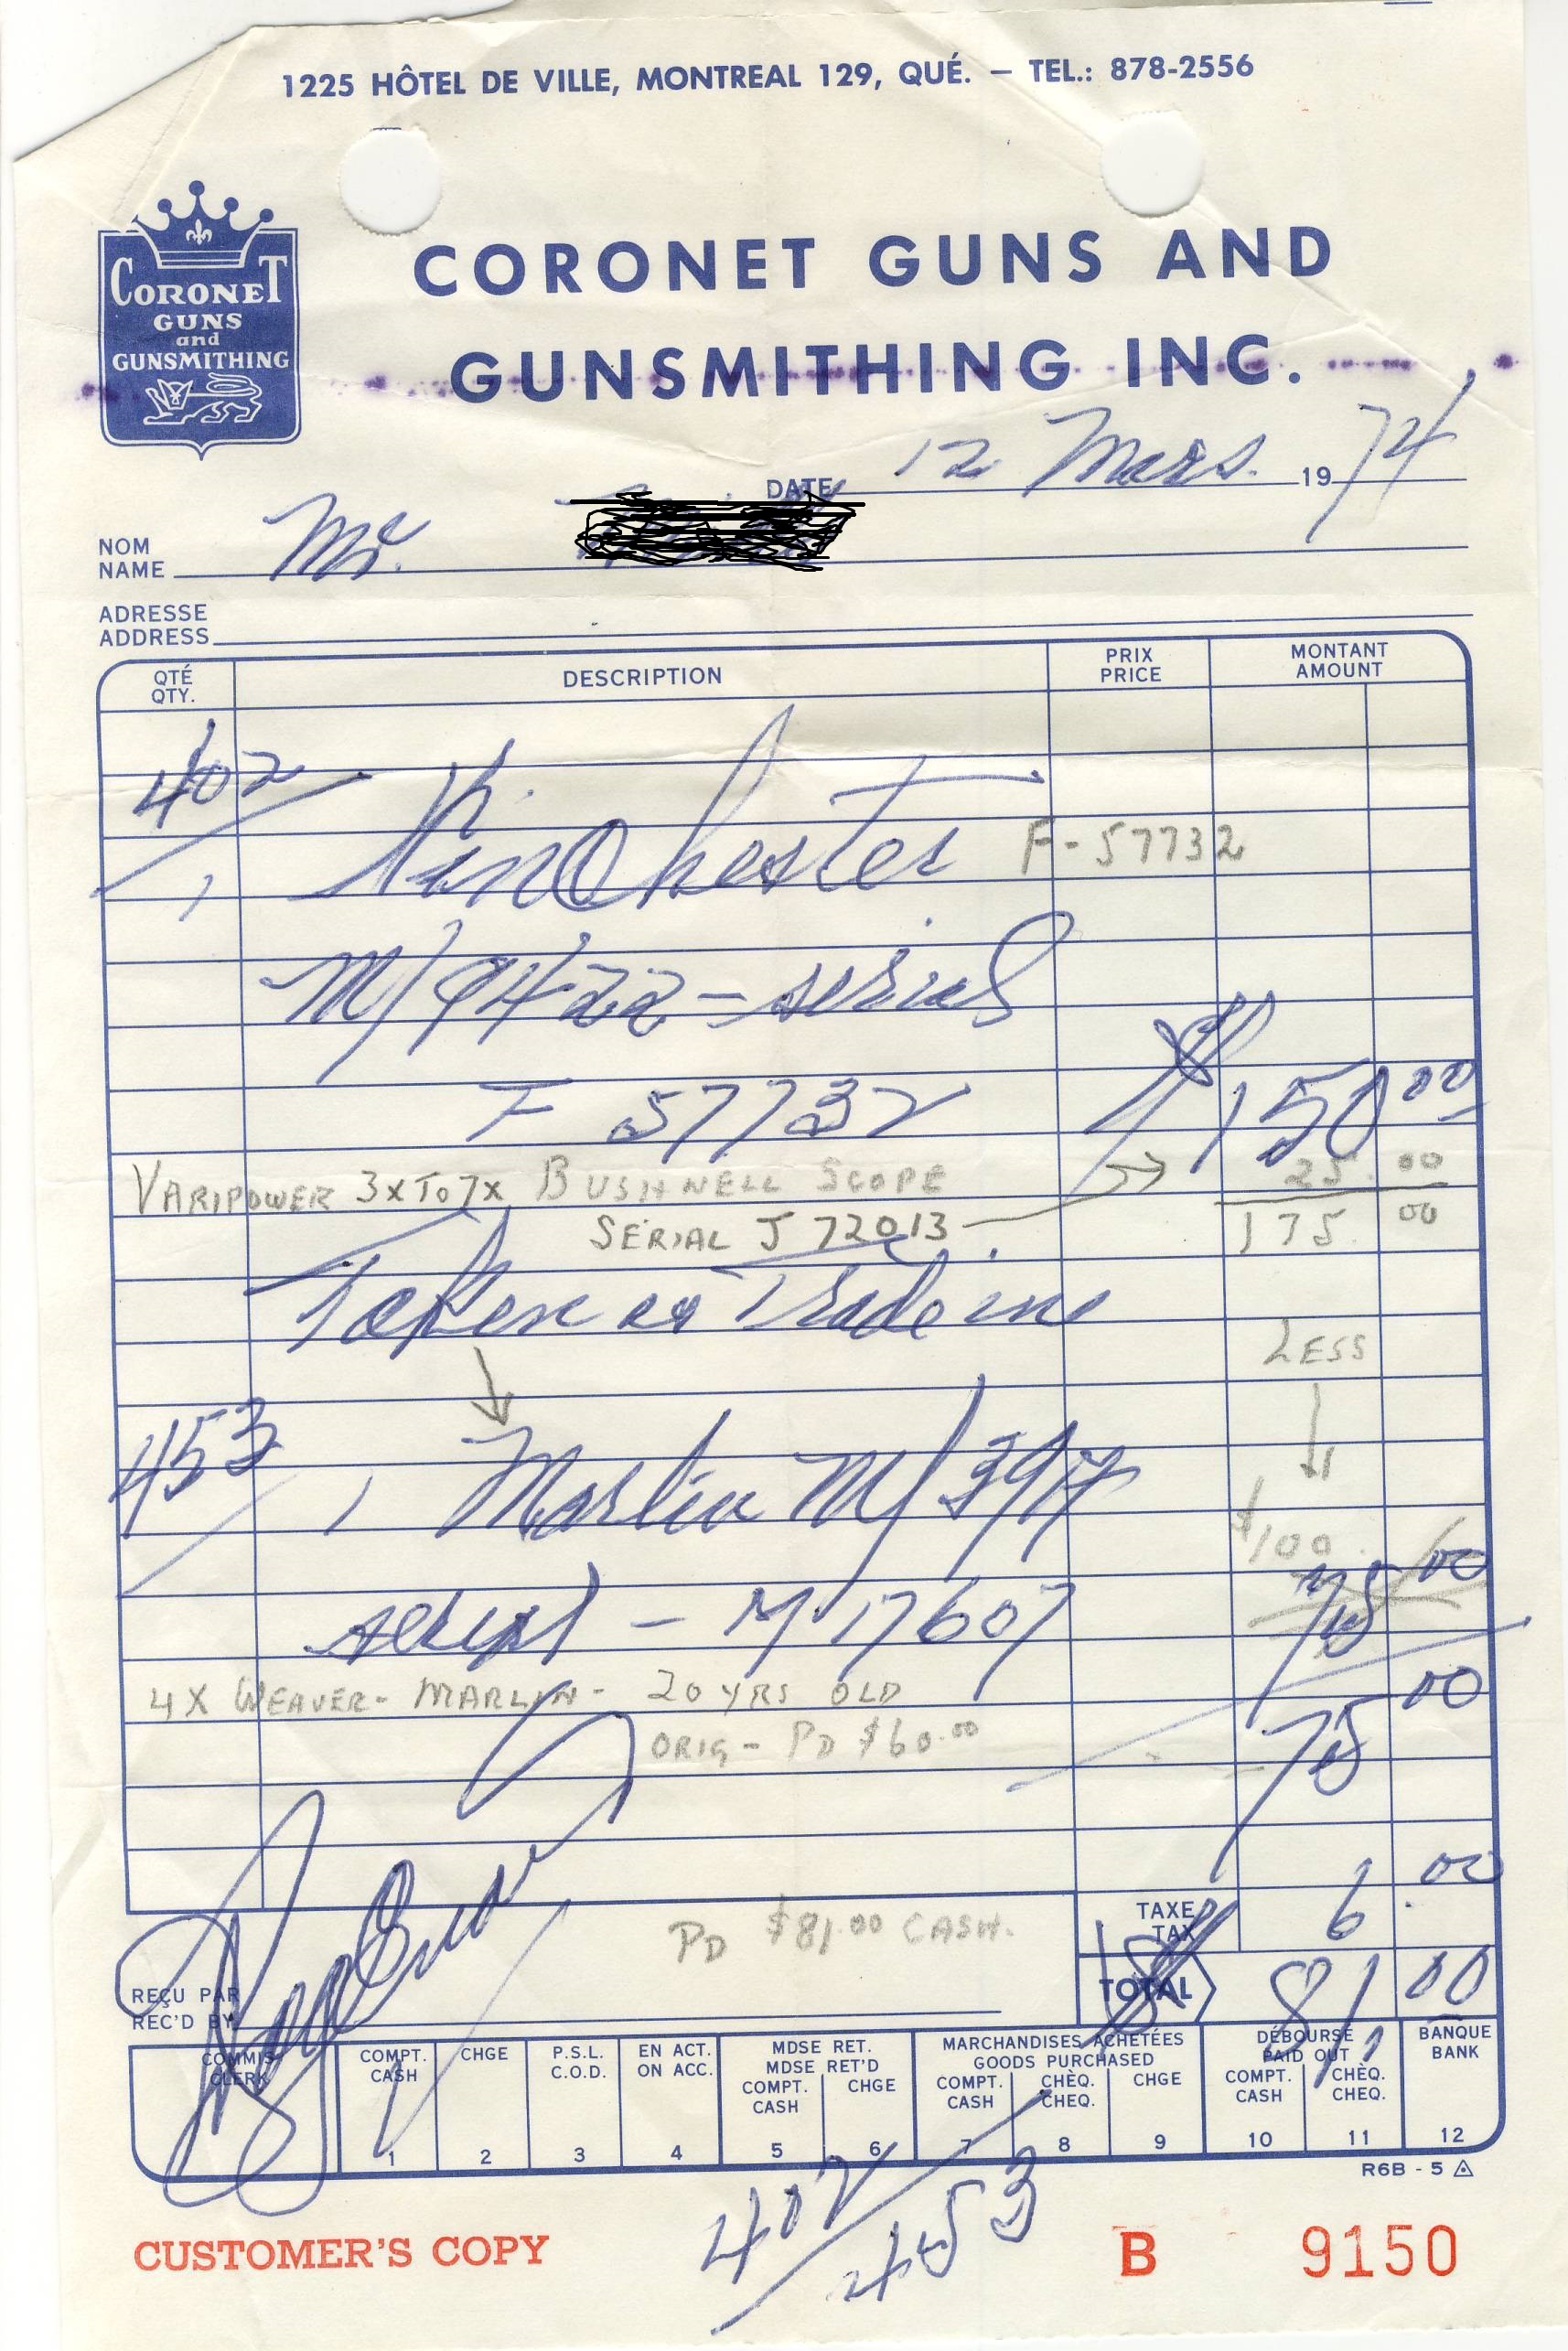 1225 HÔTEL DE VILLE, MONTREAL 129, QUÉ. — TEL.: 878-2556
CORONET
GUNS
and
GUNSMITHING
CORONET GUNS AND
GUNSMITHING INC.
DATE 12 Mars. 1974
NOM
NAME Mr.
ADRESSE
ADDRESS
QTÉ
QTY.
DESCRIPTION
PRIX
PRICE
MONTANT
AMOUNT
402
1 Winchester F-57732
M/9422 - serial
F 57732 $150 00
VARIPOWER 3X TO 7X BUSHNELL SCOPE 25.00
SERIAL J 72013 175.00
Taken as Trade in
LESS
453 1 Marlin M/39A
$100.00
serial - M.17607 75
4X WEAVER - MARLIN - 20 YRS OLD
ORIG - PD $60.00 75 00
TAXE
TAX 6.00
PD $81.00 CASH.
REÇU PAR
REC'D BY
TOTAL 81.00
COMMIS
CLERK
COMPT.
CASH
1
CHGE
2
P.S.L.
C.O.D.
3
EN ACT.
ON ACC.
4
MDSE RET.
MDSE RET'D
COMPT.
CASH
5
CHGE
6
MARCHANDISES ACHETÉES
GOODS PURCHASED
COMPT.
CASH
7
CHÈQ.
CHEQ.
8
CHGE
9
DÉBOURSÉ
PAID OUT
COMPT.
CASH
10
CHÈQ.
CHEQ.
11
BANQUE
BANK
12
R6B - 5
402/453
CUSTOMER'S COPY B 9150